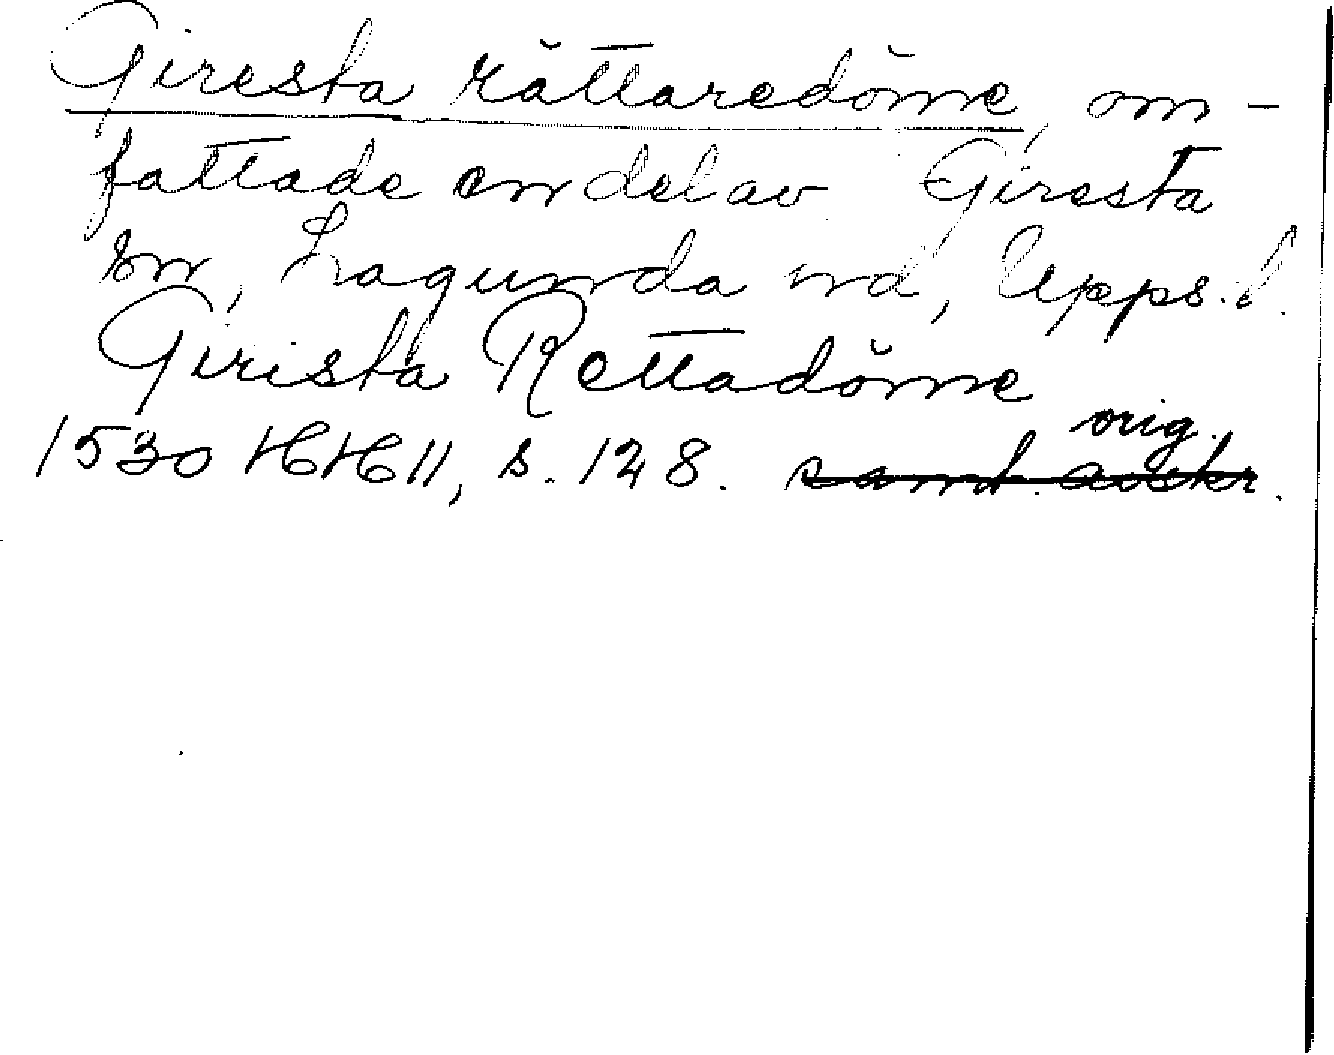 Giresta rättaredöme, om-
fattade en del av Giresta
sn, Lagunda hd, Upps. l.
Girista Rettadöme
orig.
1530 HH 11, s. 128. samt. avskr.